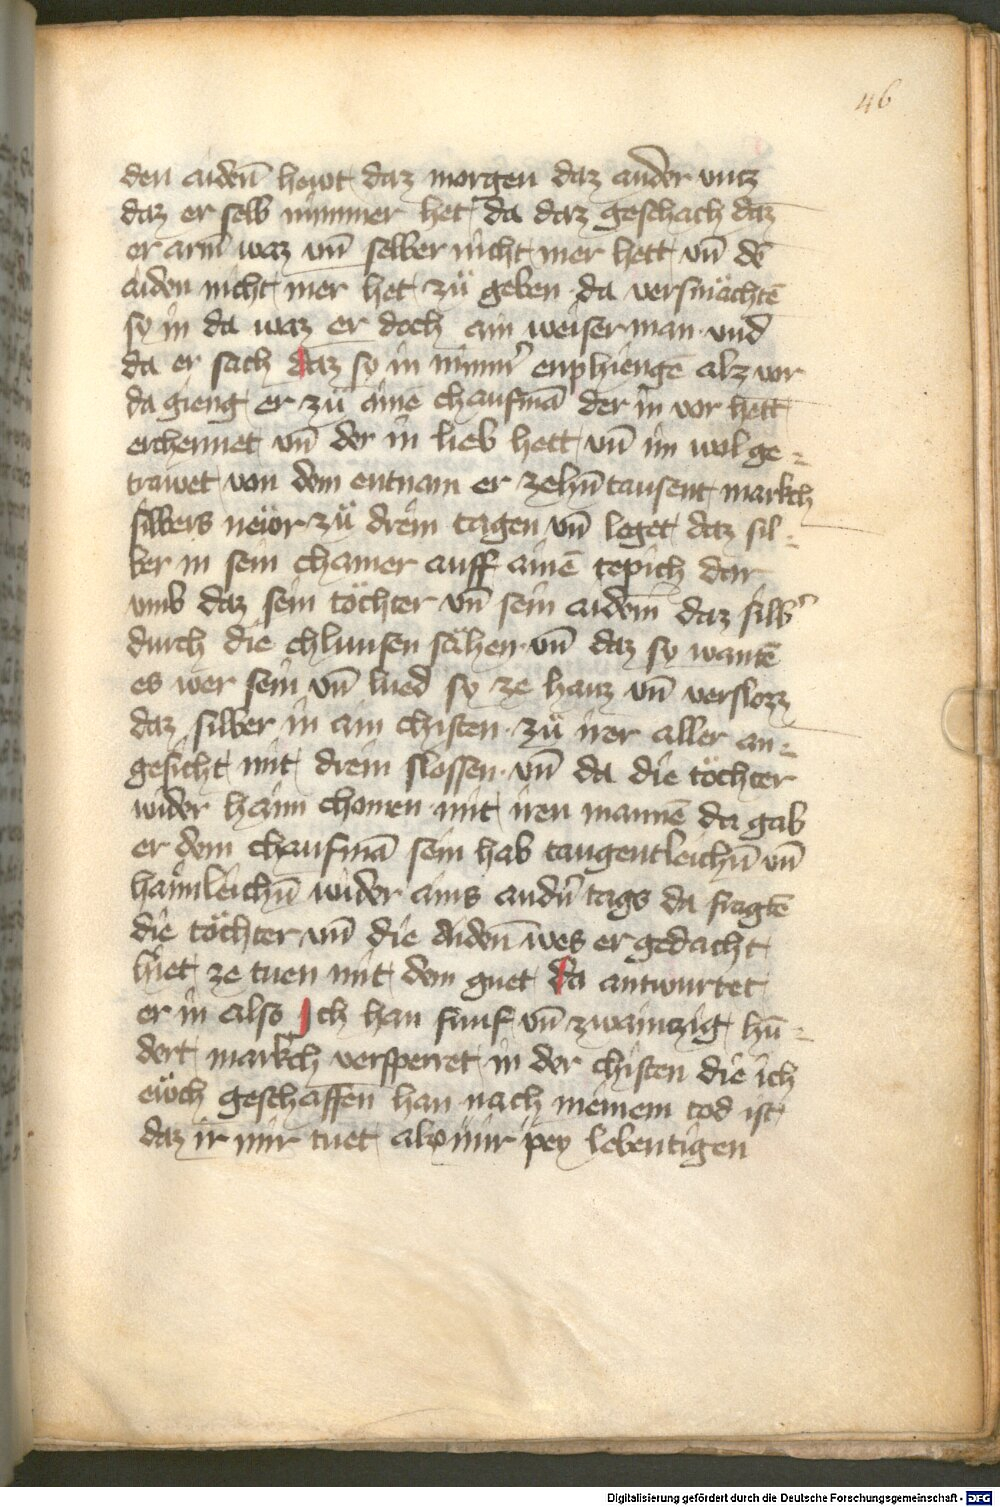 46
den aidē hewt daz morgen daz ander vntz
daz er selb nimmer het da daz geschach daz
er arm waz vn̄ selber nicht mer hett vn̄ dē
aiden nicht mer het zü geben da versmächtē
sy in da waz er doch ain weiser man vnd
da er sach daz sy in nimmʼ enphiengē alz vor
da gieng er zü ainē chaufmā der in vor hett
erchennet vn̄ der in lieb hett vn̄ im wol ge-
trawet von dem entnam er zehn̄ tausent markch
silbers newr zü drein tagen vn̄ leget daz sil-
ber in sein chamer auff ainē tepich dar
vmb daz sein töchter vn̄ sein aidem daz silbʼ
durch die chlunsen sähen vn̄ daz sy wantē
es wer sein vn̄ lued sy ze hauz vn̄ verslozz
daz silber in ain chisten zü irer aller an-
gesicht mit drein slossen vn̄ da die töchter
wider haim chomen mit iren mannē da gab
er dem chaufmā sein hab taugentleichn̄ vn̄
haimleichn̄ wider ains andn̄ tags da fragtē
die töchter vn̄ die aiden̄ wes er gedacht
hiet ze tuen mit dem guet da antwurtet
er in also Ich han funf vn̄ zwaintzig hū-
dert markch versperret in der chisten die ich
ewch geschaffen han nach meinem tod ist
daz ir mir tuet alz mir pey lebentigen
Digitalisierung gefördert durch die Deutsche Forschungsgemeinschaft - DFG